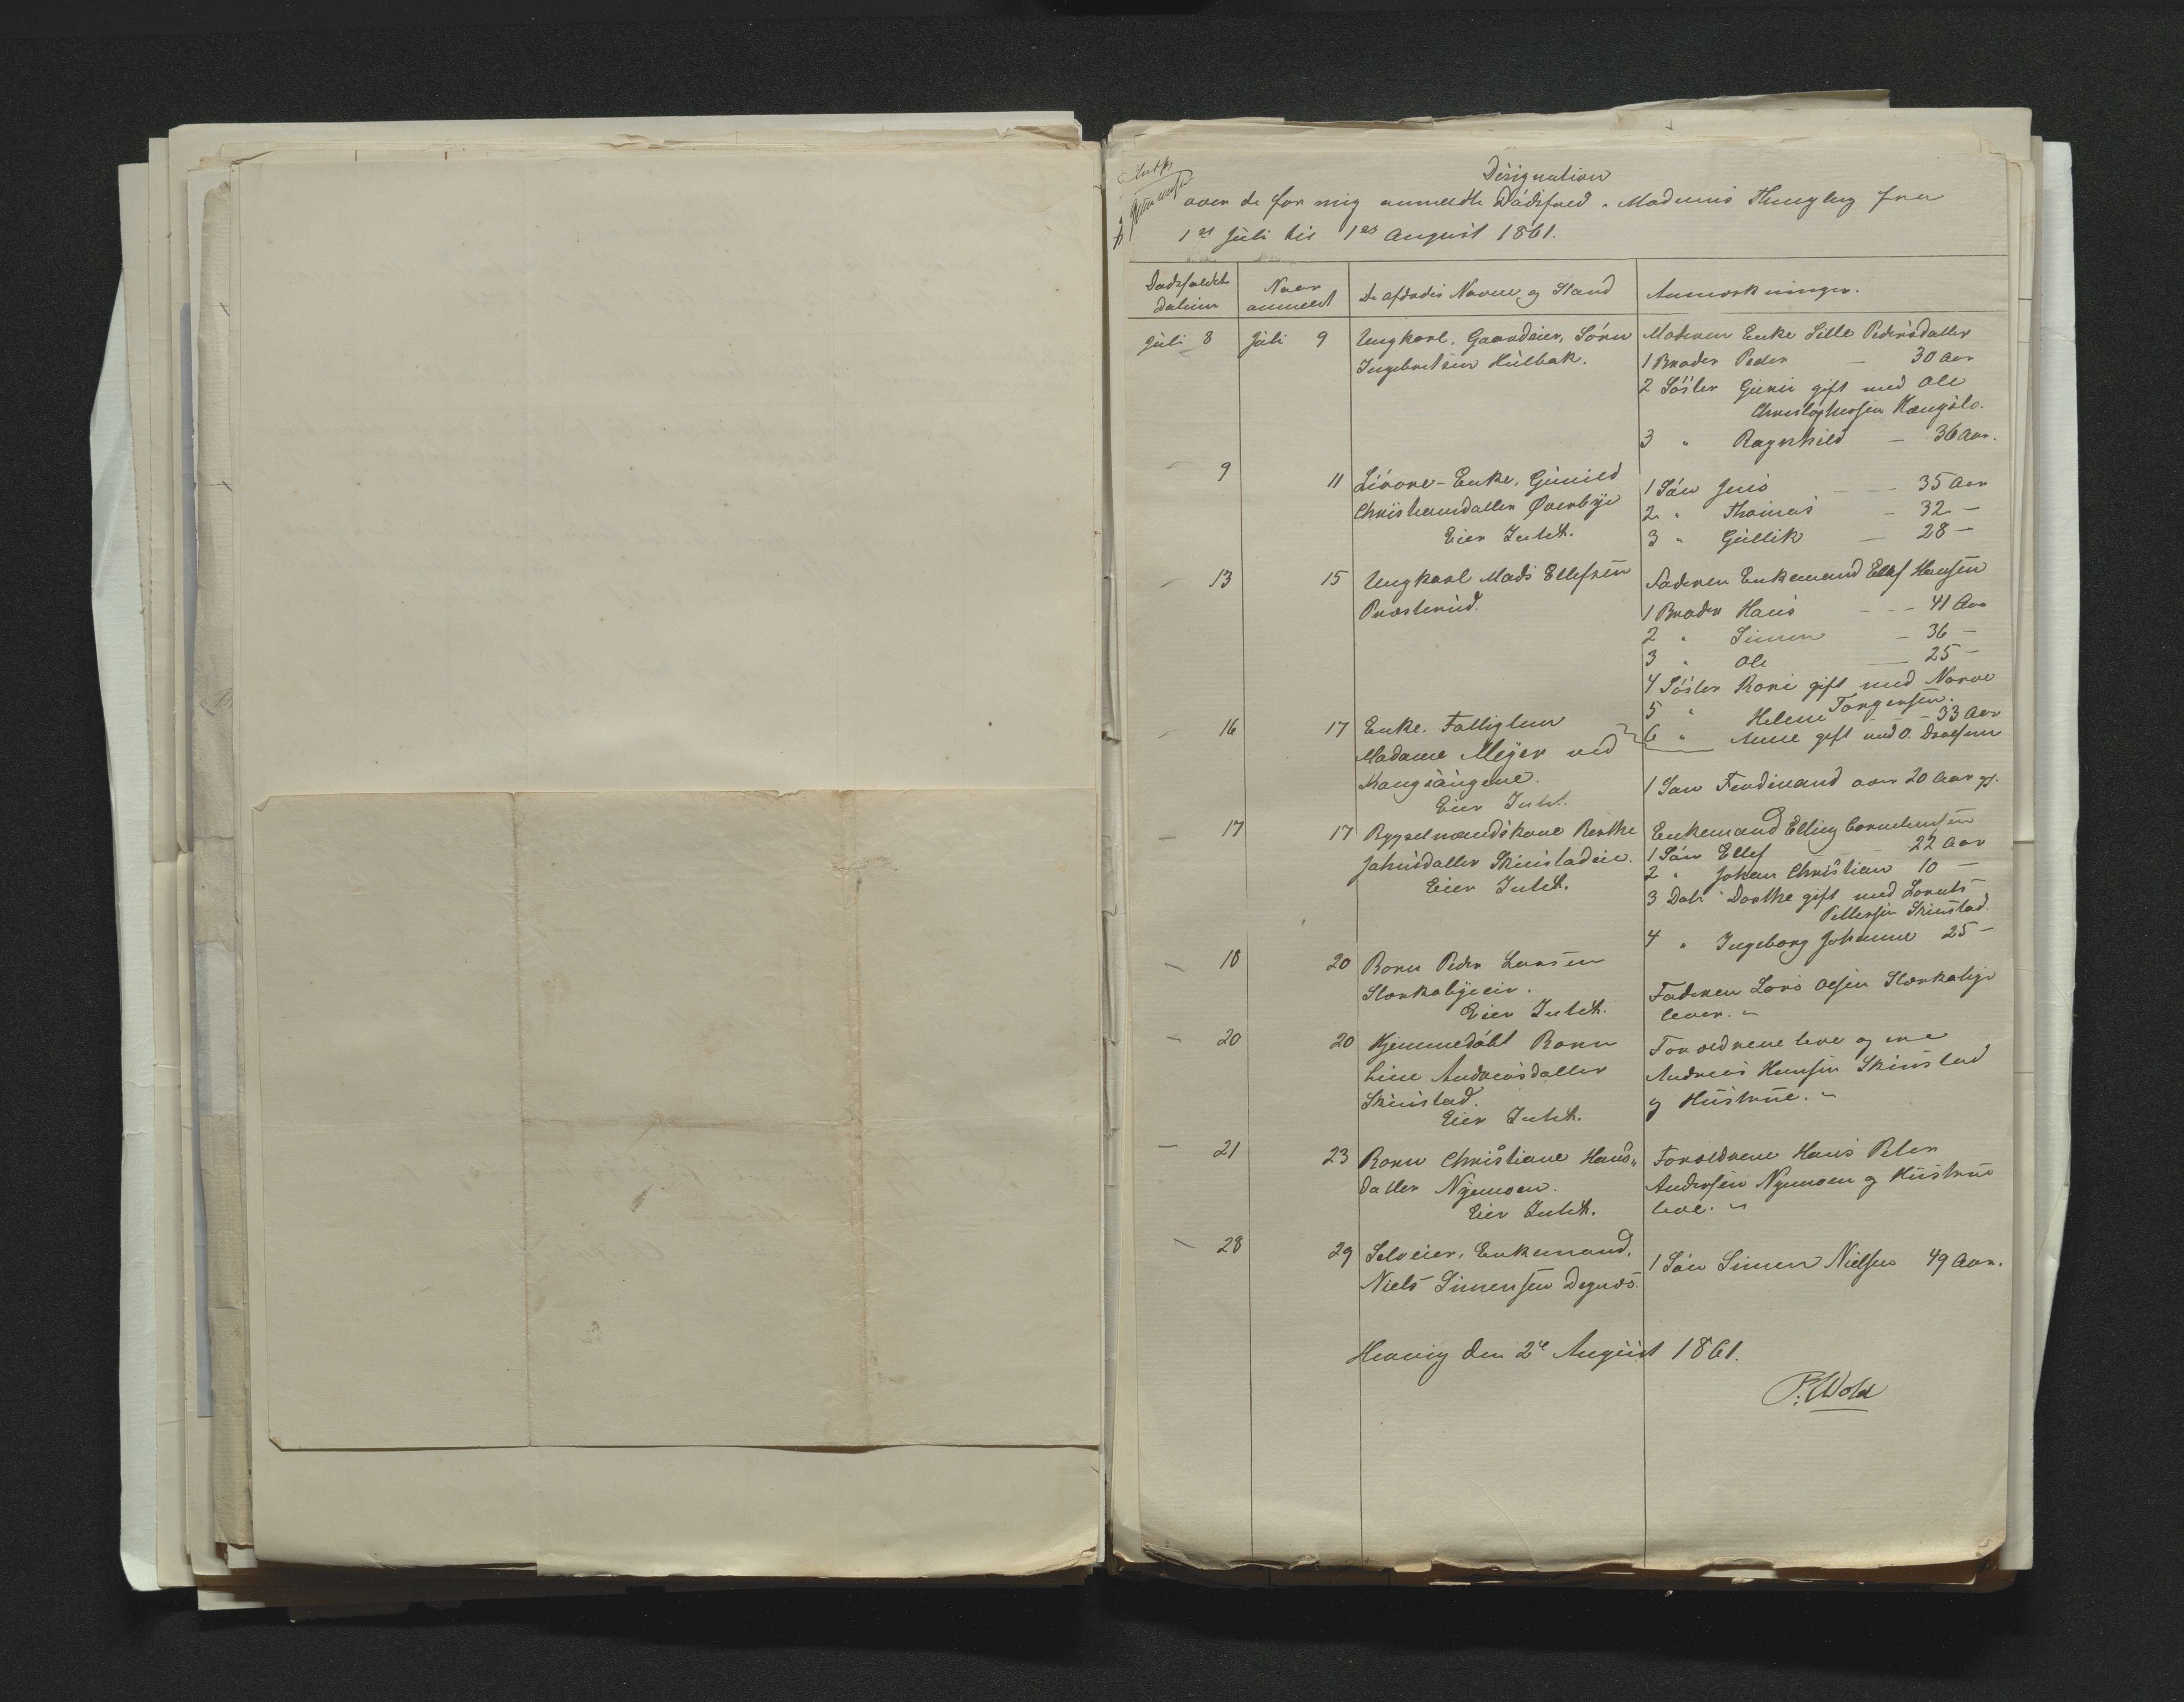 Designation
over de for mig anmeldte Dödsfald i Modums Thinglag fra
1st Juli til 1st August 1861.
Dødsfaldets Datum
Naar anmeldt
De afdødes Navne og Stand
Anmærkninger.
Juli 8 Juli 9 Ungkarl, Gaardeier, Sörn
Ingebretsen Hulbak.
Moderen Enke Sille Pedersdatter
1 Broder Peder — 30 Aar
2 Söster Guri gift med Ole
Christophersen
3 " Ragnhild — 36 Aar.
9 11 Enke, Gunild
Christiansdatter Øverbye
Eier Intet.
1 Sön Jens — 35 Aar
2 " Thomas — 32 —
3 " Gullik — 28 —
13 15 Ungkarl Mads Ellefsen
Præsterud.
Faderen Enkemand Ellef Hansen
1 Broder Hans — 41 Aar
2 " Simen — 36 —
3 " Ole — 25 —
4 Söster Kari gift med Narve
Torgersen.
5 " Helene — 33 Aar
6 " Anne gift med O.
16 17 Enke. Fattiglem
Madame Meÿer ved
Eier Intet.
1 Sön Ferdinand over 20 Aar gl.
17 17 Rÿgselmandskone Berthe
Johnsdatter Skinstadeie.
Eier Intet.
Enkemand Elling Corneliussen
1 Sön Ellef — 22 Aar
2 " Johan Christian 10 —
3 Datr Dorthe gift med Lorents
Pettersen Skinstad.
4 " Ingeborg Johanne 25 —
18 20 Barn Peder Larsen
Størkabÿeie.
Eier Intet.
Faderen Lars Olsen Størkabÿe
lever. "
20 20 Hjemmedöbt Barn
Line Andreasdatter
Skinstad.
Eier Intet.
Forældrene leve og ere
Andreas Hansen Skinstad
og Hustrue. "
21 23 Barn Christiane Hans"
datter Nÿemoen.
Eier Intet.
Forældrene Hans Peter
Andersen Nÿemoen og Hustrue
leve. "
28 29 Selveier, Enkemand,
Niels Simensen Degnæs.
1 Sön Simen Nielsen 49 Aar.
Heavig den 2de August 1861.
P. Wold